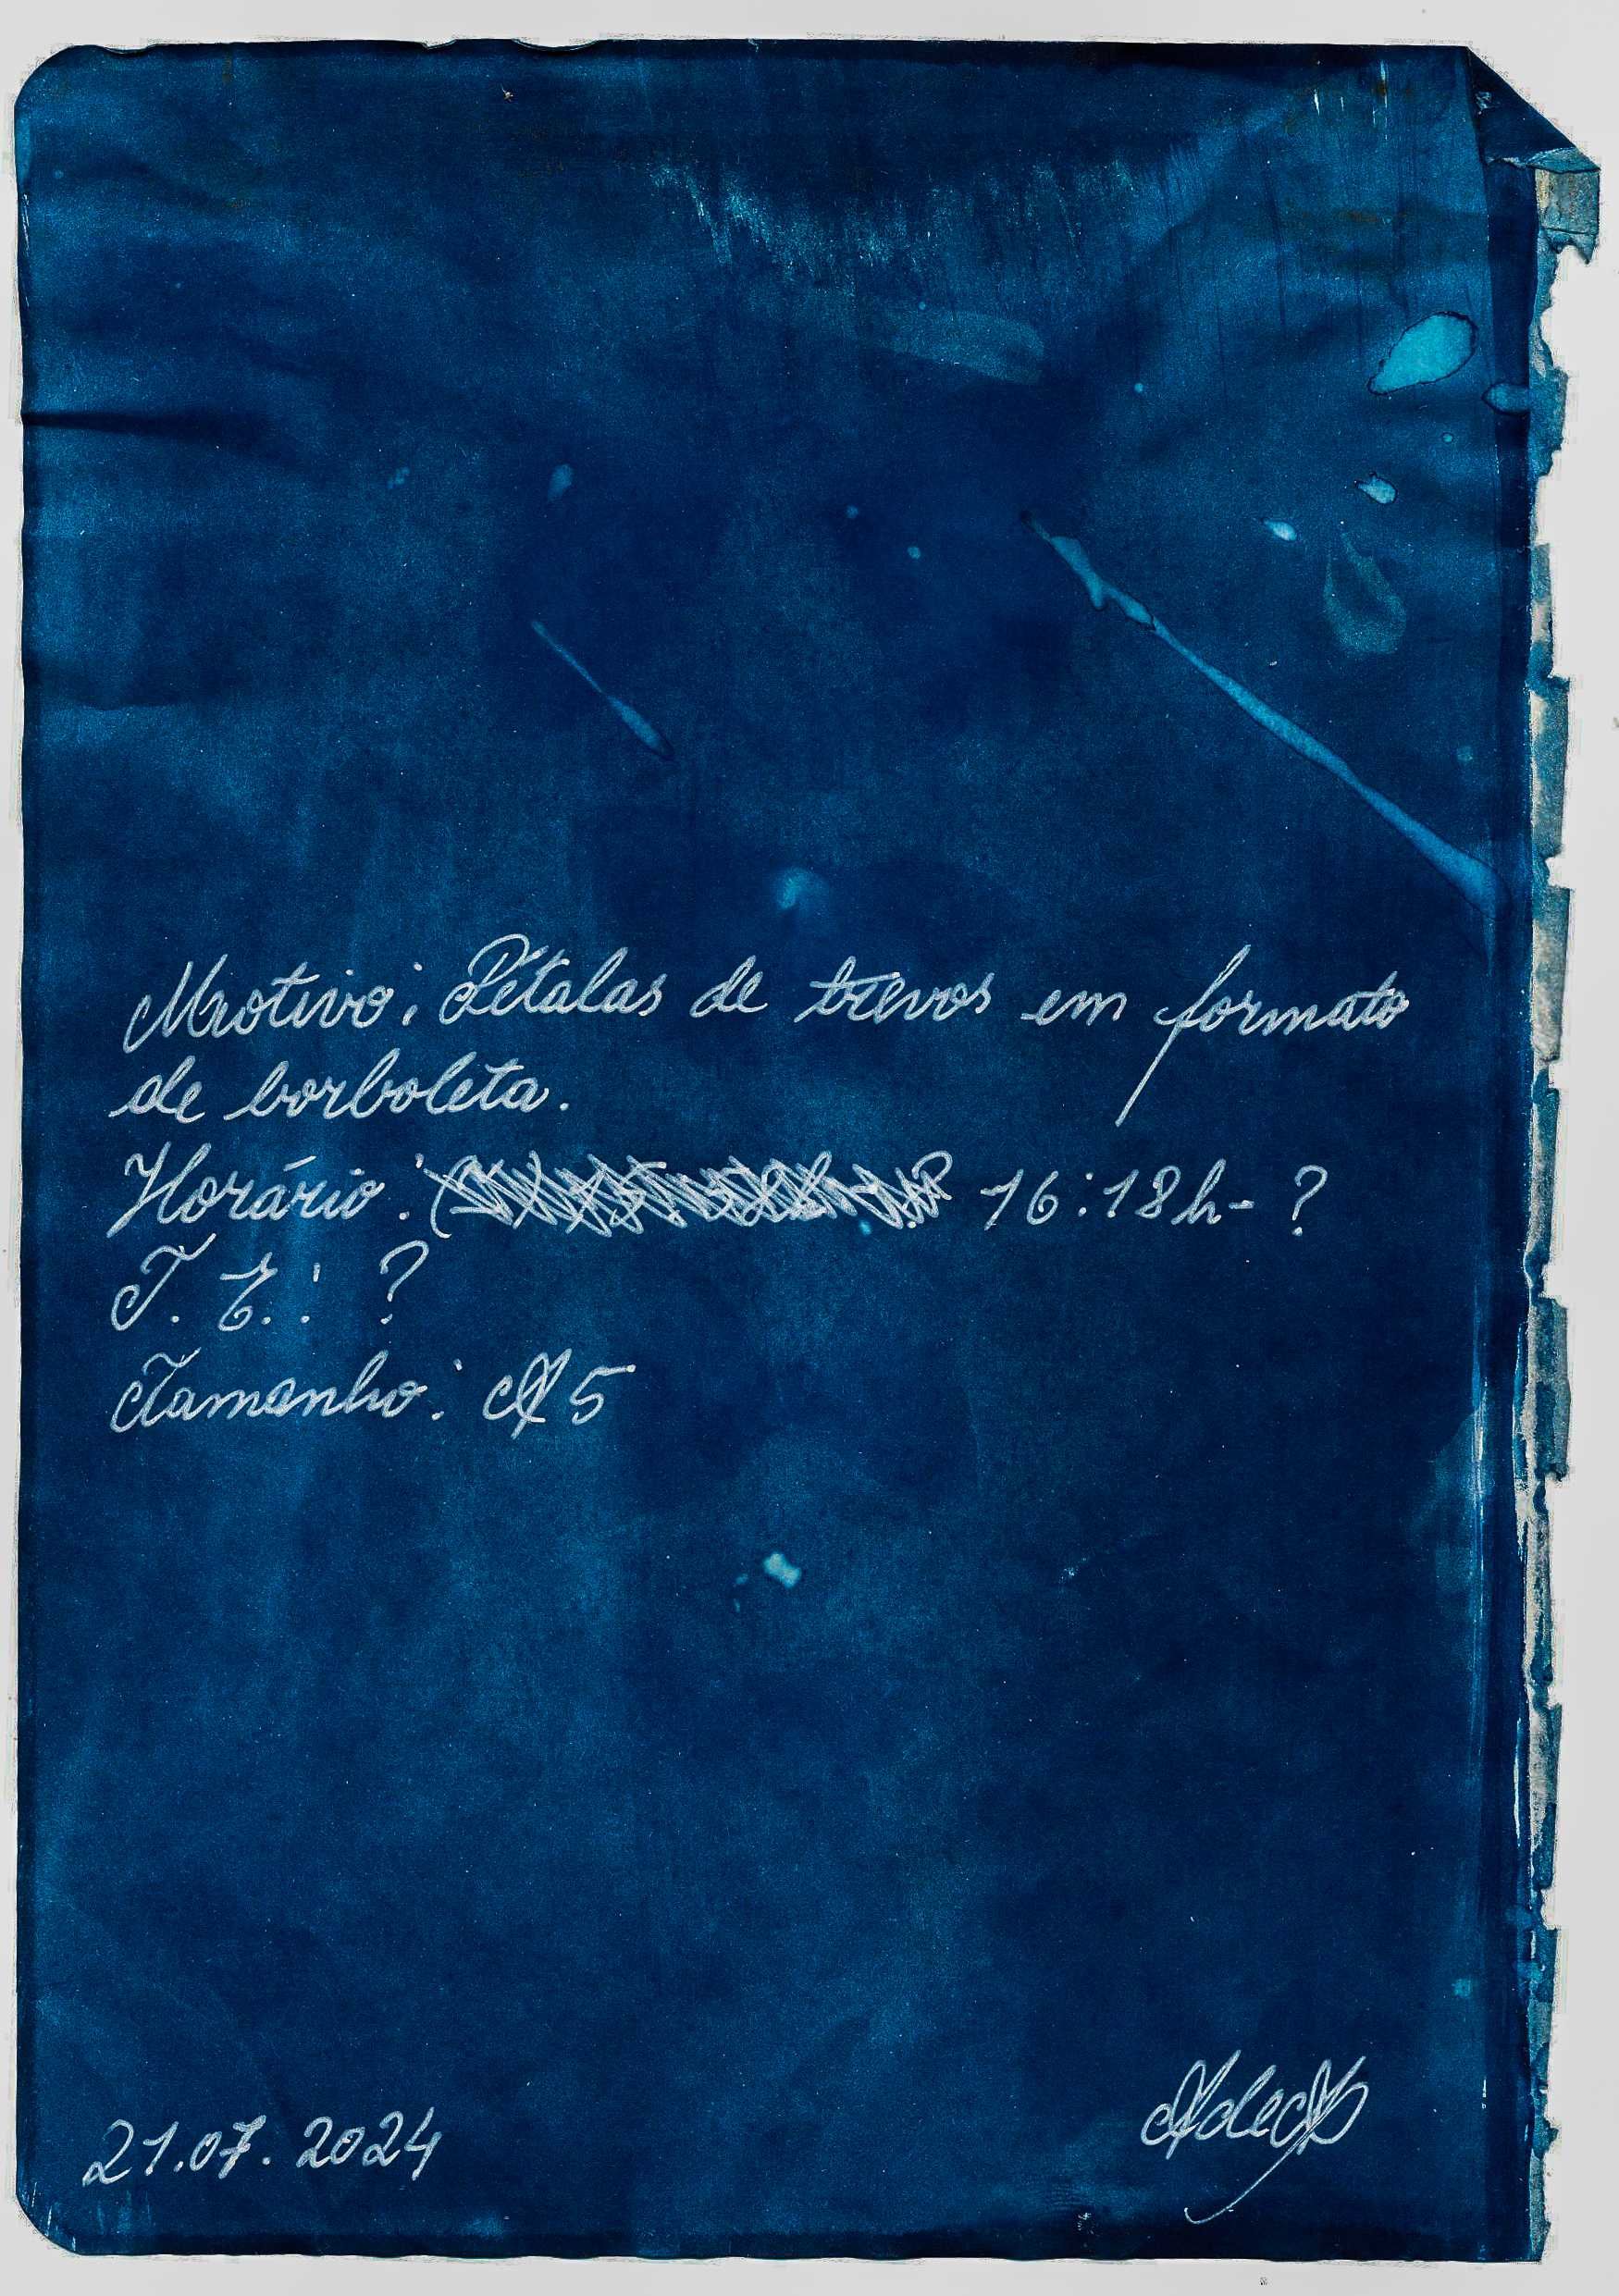 Motivo: Pétalas de trevos em formato
de borboleta.
Horário: 16:18h- ?
T. E.: ?
Tamanho: A5
21.07.2024